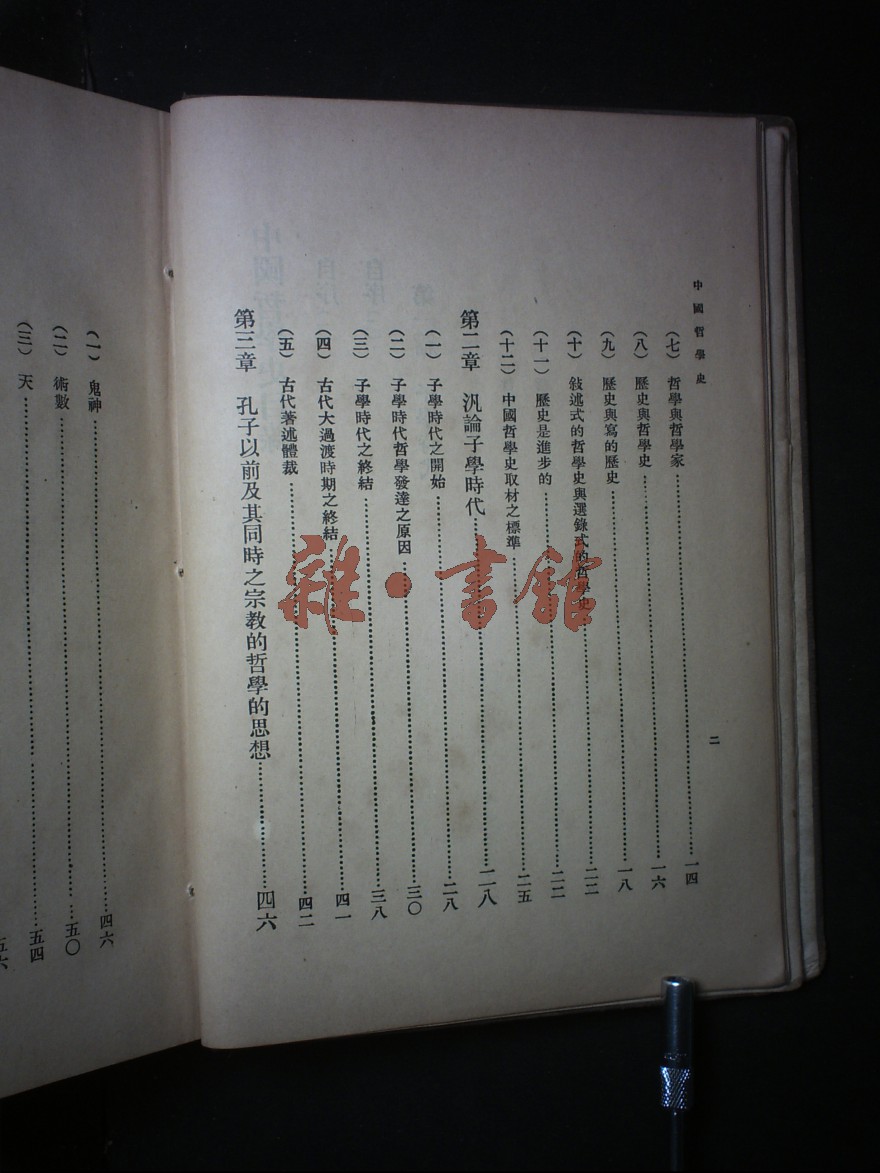 中國哲學史
二
（七） 哲學與哲學家……一四
（八） 歷史與哲學史……一六
（九） 歷史與寫的歷史……一八
（十） 敍述式的哲學史與選錄式的哲學史……二二
（十一） 歷史是進步的……二二
（十二） 中國哲學史取材之標準……二五
第二章 汎論子學時代……二八
（一） 子學時代之開始……二八
（二） 子學時代哲學發達之原因……三〇
（三） 子學時代之終結……三八
（四） 古代大過渡時期之終結……四一
（五） 古代著述體裁……四二
第三章 孔子以前及其同時之宗教的哲學的思想……四六
（一） 鬼神……四六
（二） 術數……五〇
（三） 天……五四
五六
雜·書館